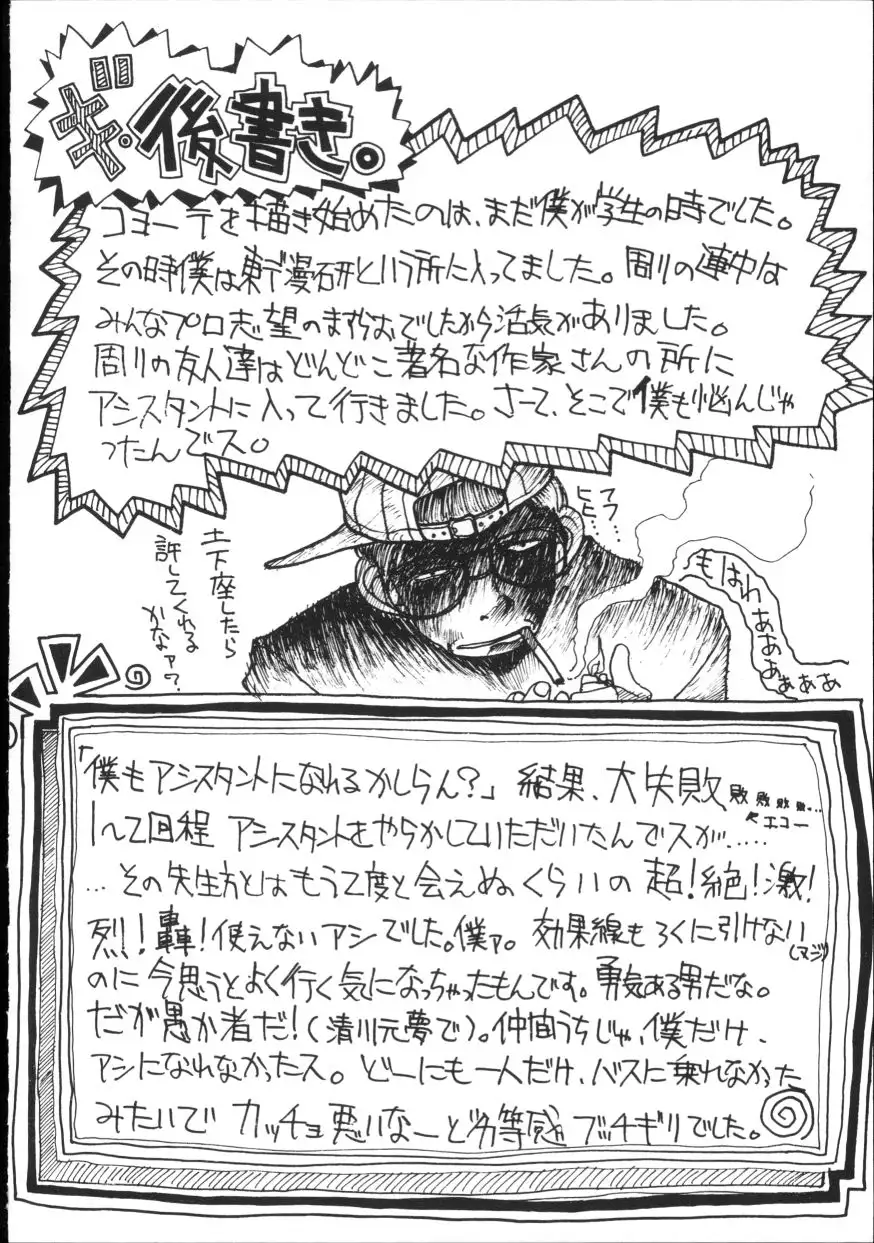 ギ・後書き。
コヨーテを描き始めたのは、まだ僕が学生の時でした。
その時僕は東デ漫研という所に入ってました。周りの連中は
みんなプロ志望のまずらおでしたから活気がありました。
周りの友人達はどんどこ著名な作家さんの所に
アシスタントに入って行きました。さーて、そこで僕も悩んじゃ
ったんでス。
ヒヒ…フフ…
土下座したら
許してくれる
かなァ?
もはわぁあああぁぁ
「僕もアシスタントになれるかしらん?」結果、大失敗敗敗敗敗…
↖エコー
1〜2回程 アシスタントをやらかしていただいたんでスが……
…その先生方とはもう2度と会えぬくらいの 超!絶!激!
烈!轟!使えないアシでした。僕ァ。効果線もろくに引けない
(マジ)
のに今思うとよく行く気になっちゃったもんです。勇気ある男だな。
だが愚か者だ!(清川元夢で)。仲間うちじゃ、僕だけ、
アシになれなかったス。どーにも一人だけ、バスに乗れなかった
みたいで カッチョ悪いなーと劣等感ブッチギリでした。